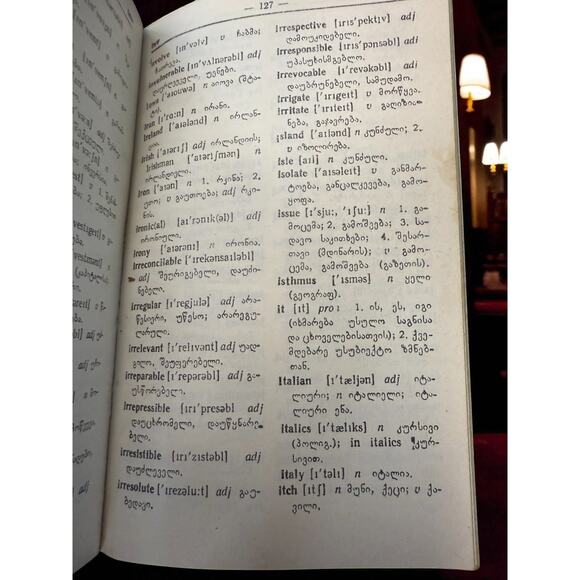 — 127 —
inv
involve [ın'vɔlv] v ჩაბმა;
invulnerable [ın'vʌlnərəbl] adj
Iowa ['aıouwə] n აიოვა (შტა-
Iran [ı'rɑ:n] n ირანი.
Ireland ['aıələnd] n ირლან-
Irish ['aıərıʃ] adj ირლანდიის;
Irishman ['aıərıʃmən] n
ირლანდიელი.
iron ['aıən] n 1. რკინა; 2.
უთო; v გაუთოება; adj რკი-
ნის.
ironic(al) [aı'rɔnık(əl)] adj
ირონიული.
irony ['aıərənı] n ირონია.
irreconcilable [ı'rekənsaıləbl]
adj შეურიგებელი, დაუძი-
ნებელი.
irregular [ı'regjulə] adj არა-
წესიერი, უწესო; არარეგუ-
ლარული.
irrelevant [ı'relıvənt] adj უად-
გილო, შეუფერებელი.
irreparable [ı'repərəbl] adj გა-
უსწორებელი.
irrepressible [ırı'presəbl] adj
დაუცხრომელი, დაუწყნარე-
ბელი.
irresistible [ırı'zıstəbl] adj
დაუძლეველი.
irresolute ['ırezəlu:t] adj გაუ-
ბედავი.
irrespective [ırıs'pektıv] adj
დამოუკიდებელი.
irresponsible [ırıs'pɔnsəbl] adj
უპასუხისმგებლო.
irrevocable [ı'revəkəbl] adj
დაუბრუნებელი, სამუდამო.
irrigate ['ırıgeıt] v მორწყვა.
irritate ['ırıteıt] v გაღიზია-
ნება, გაჯავრება.
island ['aılənd] n კუნძული; 2.
v იზოლირება.
isle [aıl] n კუნძული.
isolate ['aısəleıt] v განმარ-
ტოება, განცალკევება, გამო-
ყოფა.
issue ['ısju:, 'ıʃu:] n 1. გა-
მოცემა; 2. გამოშვება; 3. სა-
დავო საკითხები; 4. შესარ-
თავი (მდინარის); v გამო-
ცემა, გამოშვება (გაზეთის).
isthmus ['ısməs] n ყელი
(გეოგრაფ).
it [ıt] pro: 1. ის, ეს, იგი
(იხმარება უსულო საგნისა
და ცხოველებისათვის); 2. ქვე-
მდებარე უსუბიექტო ზმნებ-
თან.
Italian [ı'tæljən] adj იტა-
ლიური; n იტალიელი; იტა-
ლიური ენა.
italics [ı'tælıks] n კურსივი
(პოლიგ.); in italics კურ-
სივით.
italy ['ıtəlı] n იტალია.
itch [ıtʃ] n მუნი, ქეცი; v ქა-
ვილი.